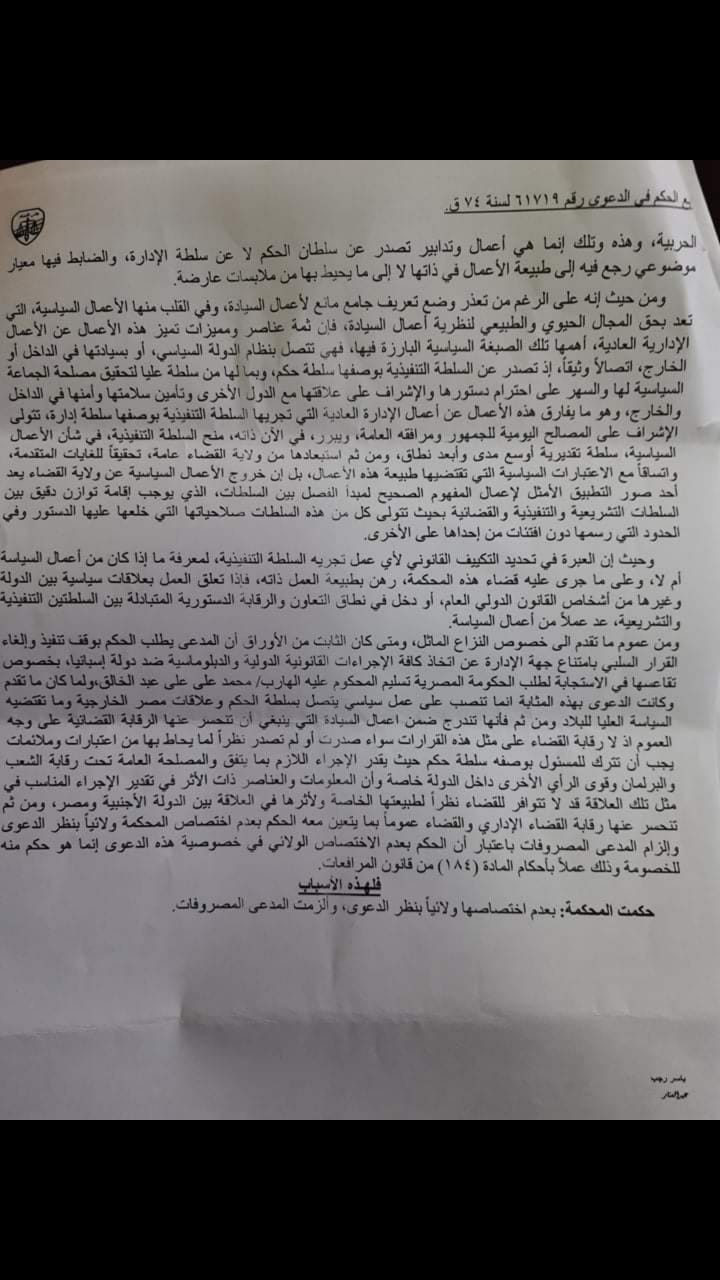 ـع الحكم في الدعوى رقم ٦١٧١٩ لسنة ٧٤ ق.
الحربية، وهذه وتلك إنما هي أعمال وتدابير تصدر عن سلطان الحكم لا عن سلطة الإدارة، والضابط فيها معيار
موضوعي رجع فيه إلى طبيعة الأعمال في ذاتها لا إلى ما يحيط بها من ملابسات عارضة.
ومن حيث إنه على الرغم من تعذر وضع تعريف جامع مانع لأعمال السيادة، وفي القلب منها الأعمال السياسية، التي
تعد بحق المجال الحيوي والطبيعي لنظرية أعمال السيادة، فإن ثمة عناصر ومميزات تميز هذه الأعمال عن الأعمال
الإدارية العادية، أهمها تلك الصبغة السياسية البارزة فيها، فهي تتصل بنظام الدولة السياسي، أو بسيادتها في الداخل أو
الخارج، اتصالاً وثيقاً، إذ تصدر عن السلطة التنفيذية بوصفها سلطة حكم، وبما لها من سلطة عليا لتحقيق مصلحة الجماعة
السياسية لها والسهر على احترام دستورها والإشراف على علاقتها مع الدول الأخرى وتأمين سلامتها وأمنها في الداخل
والخارج، وهو ما يفارق هذه الأعمال عن أعمال الإدارة العادية التي تجريها السلطة التنفيذية بوصفها سلطة إدارة، تتولى
الإشراف على المصالح اليومية للجمهور ومرافقه العامة، ويبرر، في الآن ذاته، منح السلطة التنفيذية، في شأن الأعمال
السياسية، سلطة تقديرية أوسع مدى وأبعد نطاق، ومن ثم استبعادها من ولاية القضاء عامة، تحقيقاً للغايات المتقدمة،
واتساقاً مع الاعتبارات السياسية التي تقتضيها طبيعة هذه الأعمال، بل إن خروج الأعمال السياسية عن ولاية القضاء يعد
أحد صور التطبيق الأمثل لإعمال المفهوم الصحيح لمبدأ الفصل بين السلطات، الذي يوجب إقامة توازن دقيق بين
السلطات التشريعية والتنفيذية والقضائية بحيث تتولى كل من هذه السلطات صلاحياتها التي خلعها عليها الدستور وفي
الحدود التي رسمها دون افتئات من إحداها على الأخرى.
وحيث إن العبرة في تحديد التكييف القانوني لأي عمل تجريه السلطة التنفيذية، لمعرفة ما إذا كان من أعمال السياسة
أم لا، وعلى ما جرى عليه قضاء هذه المحكمة، رهن بطبيعة العمل ذاته، فإذا تعلق العمل بعلاقات سياسية بين الدولة
وغيرها من أشخاص القانون الدولي العام، أو دخل في نطاق التعاون والرقابة الدستورية المتبادلة بين السلطتين التنفيذية
والتشريعية، عد عملاً من أعمال السياسة.
ومن عموم ما تقدم الى خصوص النزاع الماثل، ومتى كان الثابت من الأوراق أن المدعى يطلب الحكم بوقف تنفيذ وإلغاء
القرار السلبي بامتناع جهة الإدارة عن اتخاذ كافة الإجراءات القانونية الدولية والدبلوماسية ضد دولة إسبانيا، بخصوص
تقاعسها في الاستجابة لطلب الحكومة المصرية تسليم المحكوم عليه الهارب/ محمد على على عبد الخالق،ولما كان ما تقدم
وكانت الدعوى بهذه المثابة انما تنصب على عمل سياسي يتصل بسلطة الحكم وعلاقات مصر الخارجية وما تقتضيه
السياسة العليا للبلاد ومن ثم فأنها تندرج ضمن اعمال السيادة التي ينبغي أن تنحسر عنها الرقابة القضائية على وجه
العموم اذ لا رقابة القضاء على مثل هذه القرارات سواء صدرت أو لم تصدر نظراً لما يحاط بها من اعتبارات وملائمات
يجب أن تترك للمسئول بوصفه سلطة حكم حيث يقدر الإجراء اللازم بما يتفق والمصلحة العامة تحت رقابة الشعب
والبرلمان وقوى الرأي الأخرى داخل الدولة خاصة وأن المعلومات والعناصر ذات الأثر في تقدير الإجراء المناسب في
مثل تلك العلاقة قد لا تتوافر للقضاء نظراً لطبيعتها الخاصة ولأثرها في العلاقة بين الدولة الأجنبية ومصر، ومن ثم
تنحسر عنها رقابة القضاء الإداري والقضاء عموماً بما يتعين معه الحكم بعدم اختصاص المحكمة ولائياً بنظر الدعوى
وإلزام المدعى المصروفات باعتبار أن الحكم بعدم الاختصاص الولائي في خصوصية هذه الدعوى إنما هو حكم منه
للخصومة وذلك عملاً بأحكام المادة (١٨٤) من قانون المرافعات.
فلهذه الأسباب
حكمت المحكمة: بعدم اختصاصها ولائياً بنظر الدعوى، وألزمت المدعى المصروفات.
ياسر رجب